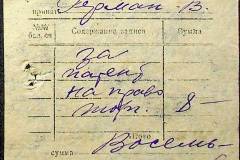 Герман В.
принят
№№ Содержание записи Сумма
за
патент
на право
торг. 8-
Итого
сумма Восемь-